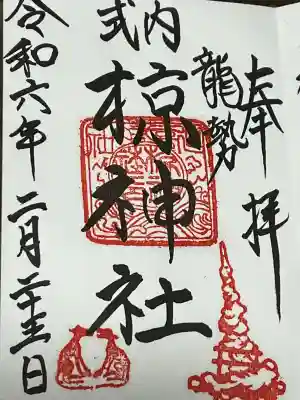 奉拝
龍勢
式内
椋神社
令和六年二月二十三日